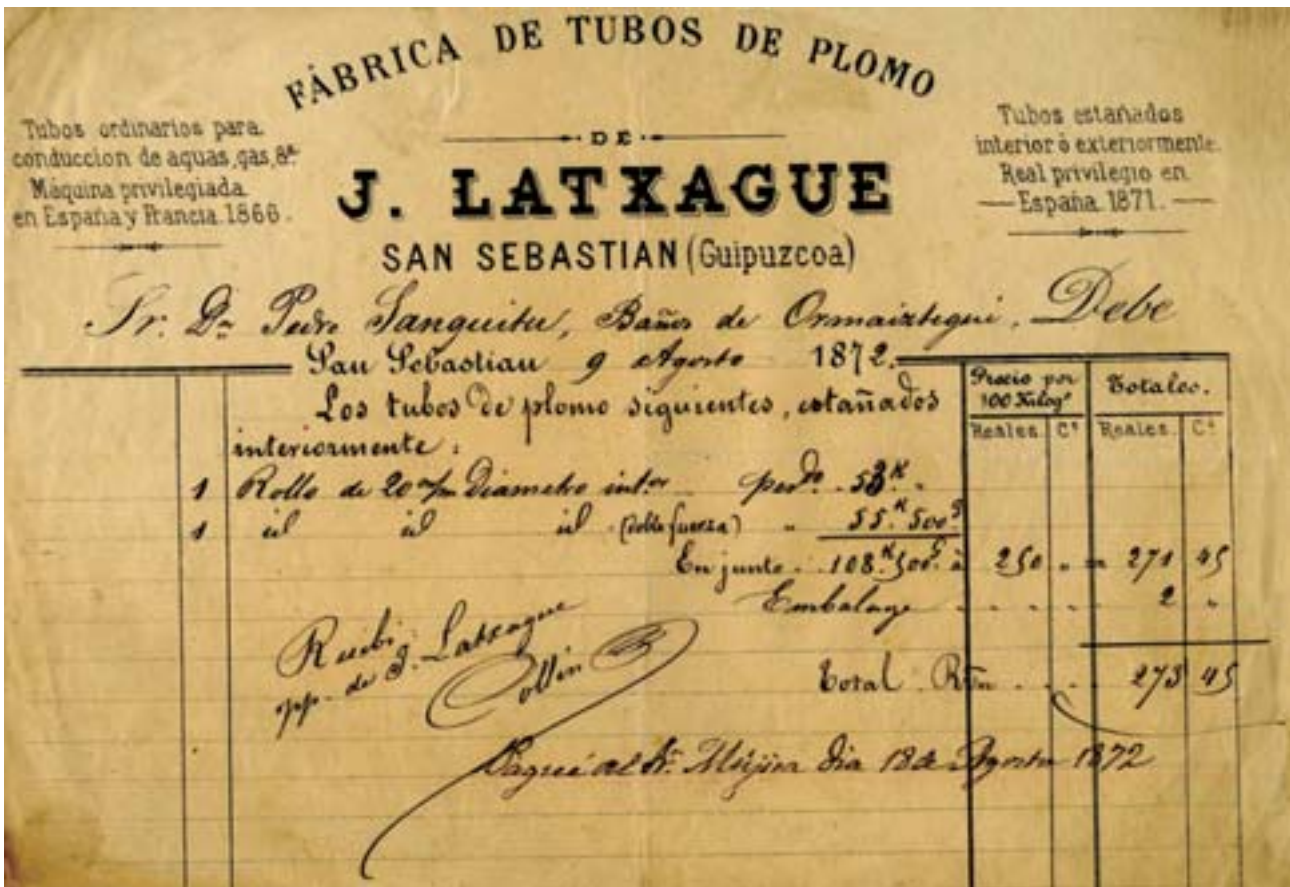 FÁBRICA DE TUBOS DE PLOMO
DE
J. LATXAGUE
SAN SEBASTIAN (Guipuzcoa)
Tubos ordinarios para
conduccion de aguas, gas, &ª
Máquina privilegiada
en España y Francia. 1866.
Tubos estañados
interior ò exteriormente.
Real privilegio en
España. 1871.
Sr. Dn. Pedro Sanguitu, Baños de Ormaiztegui. Debe
San Sebastian 9 Agosto 1872.
Precio por 100 Kilogs Totales.
Reales Cs Reales Cs
Los tubos de plomo siguientes, estañados
interiormente:
1 Rollo de 20 m/m Diametro intor pesdo 53K "
1 id id id (doble fuerza) " 55K 500g
En junto 108K 500g à 250 " = 271 45
Embalage 2 "
Total Rvn 273 45
Recibi
pp. de J. Latxague
Collin
Pagué al Sr. Mujica dia 18 de Agosto 1872